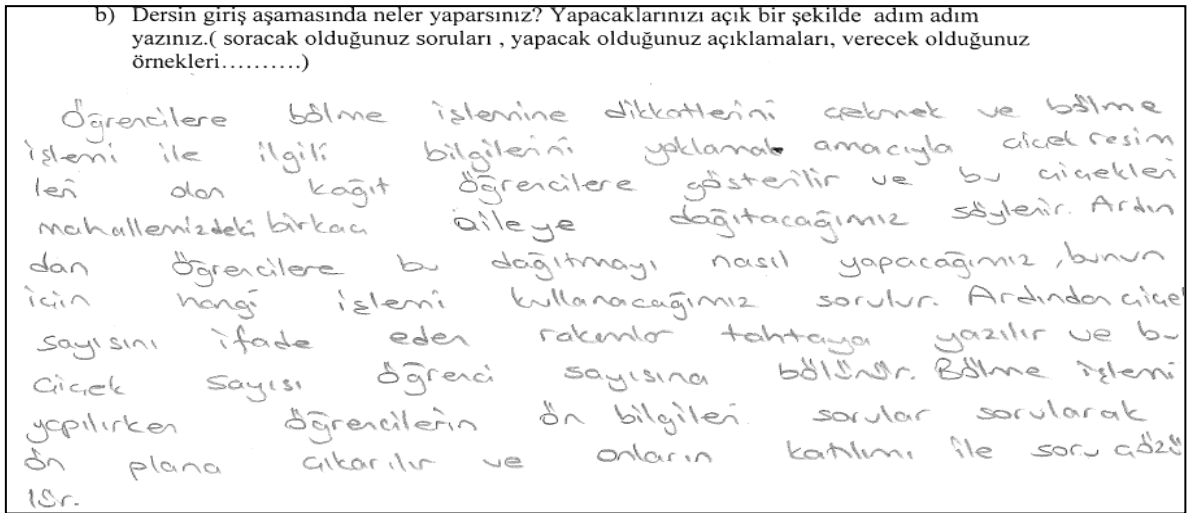 b) Dersin giriş aşamasında neler yaparsınız? Yapacaklarınızı açık bir şekilde adım adım
yazınız.( soracak olduğunuz soruları , yapacak olduğunuz açıklamaları, verecek olduğunuz
örnekleri……….)
Öğrencilere bölme işlemine dikkatlerini çekmek ve bölme
işlemi ile ilgili bilgilerini yoklamak amacıyla çiçek resim
leri olan kağıt öğrencilere gösterilir ve bu çiçekleri
mahallemizdeki birkaç aileye dağıtacağımız söylenir. Ardın
dan öğrencilere bu dağıtmayı nasıl yapacağımız, bunun
için hangi işlemi kullanacağımız sorulur. Ardından çiçe
sayısını ifade eden rakamlar tahtaya yazılır ve bu
çiçek sayısı öğrenci sayısına bölünür. Bölme işlemi
yapılırken öğrencilerin ön bilgileri sorular sorularak
ön plana çıkarılır ve onların katılımı ile soru çözü
lür.